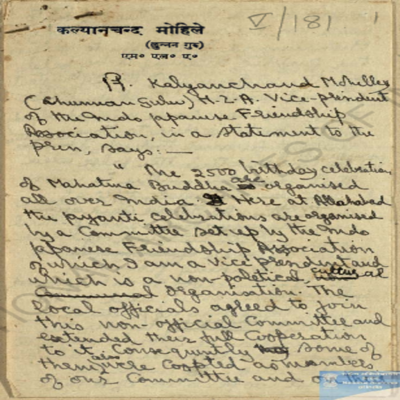 V/181
कल्यानचन्द मोहिले
(छुन्नन गुरु)
एम० एल० ए०
R. Kalyanchand Mohiley
(Chunnan Guru) M.L.A. Vice-president
of the Indo Japanese Friendship
Association, in a statement to the
press, says: —
"The 2500 birthday celebration
of Mahatma Buddha are organised
all over India. Here at Allahabad
the jayanti celebrations are organised
by a Committee set up by the Indo
Japanese Friendship Association
of which I am a Vice president and
which is a non-political, cultural
organisation. The
local officials agreed to join
this non-official Committee and
extended their full cooperation
to it. Consequently some of
them were coopted as members
of our Committee and